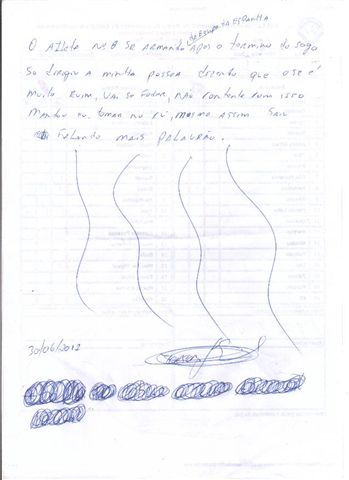 da Equipe da Espanha
O Atleta nº 8 Sr Armando Após o termino do jogo
Se dirigiu A minha pessoa dizendo que
muito Ruim, Vai se Foder, não contente com isso
Mandou eu tomar no cú, mesmo Assim Saiu
Falando mais Palavrão.
30/06/2012